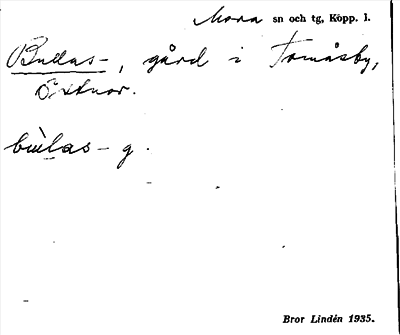 Mora sn och tg, Kopp. l.
Bullas-, gård i Tomåsby,
Östnor.
bùlas- g.
Bror Lindén 1935.